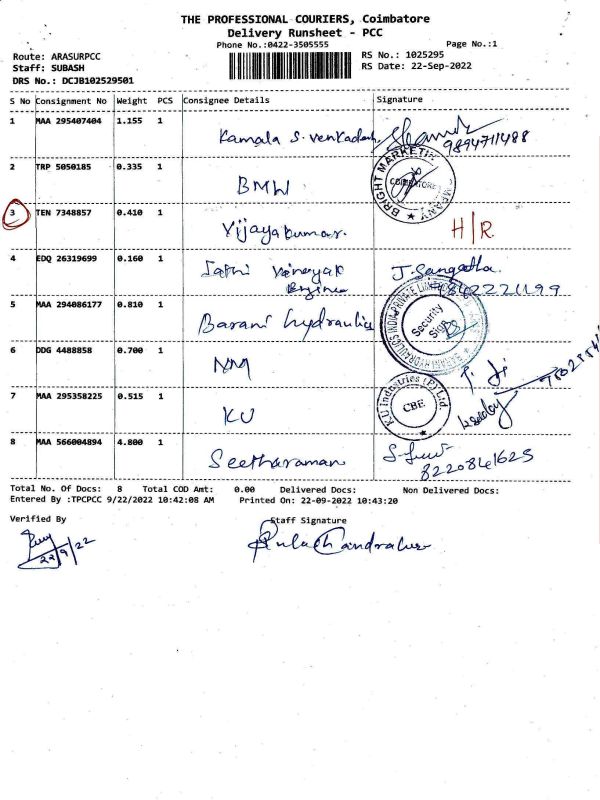 THE PROFESSIONAL COURIERS, Coimbatore
Delivery Runsheet - PCC
Phone No.:0422-3505555
Page No.:1
Route: ARASURPCC
RS No.: 1025295
Staff: SUBASH
RS Date: 22-Sep-2022
DRS No.: DCJB102529501
S No Consignment No Weight PCS Consignee Details Signature
1 MAA 295407404 1.155 1
Kamala S. Venkadesh
9894711488
2 TRP 5050185 0.335 1
BMW
BRIGHT MARKETING COMPANY
COIMBATORE
3 TEN 7348857 0.410 1
Vijayakumar. H/R
4 EDQ 26319699 0.160 1
J. Sangeetha
9842221199
5 MAA 294086177 0.810 1
Barani hydraulics
Security
Sign
6 DDG 4488858 0.700 1
NM
7 MAA 295358225 0.515 1
KU
K.U Industries (P) Ltd.
CBE
8 MAA 566004894 4.800 1
Seetharaman
8220841625
Total No. Of Docs: 8 Total COD Amt: 0.00 Delivered Docs: Non Delivered Docs:
Entered By :TPCPCC 9/22/2022 10:42:08 AM Printed On: 22-09-2022 10:43:20
Verified By Staff Signature
22/9/22